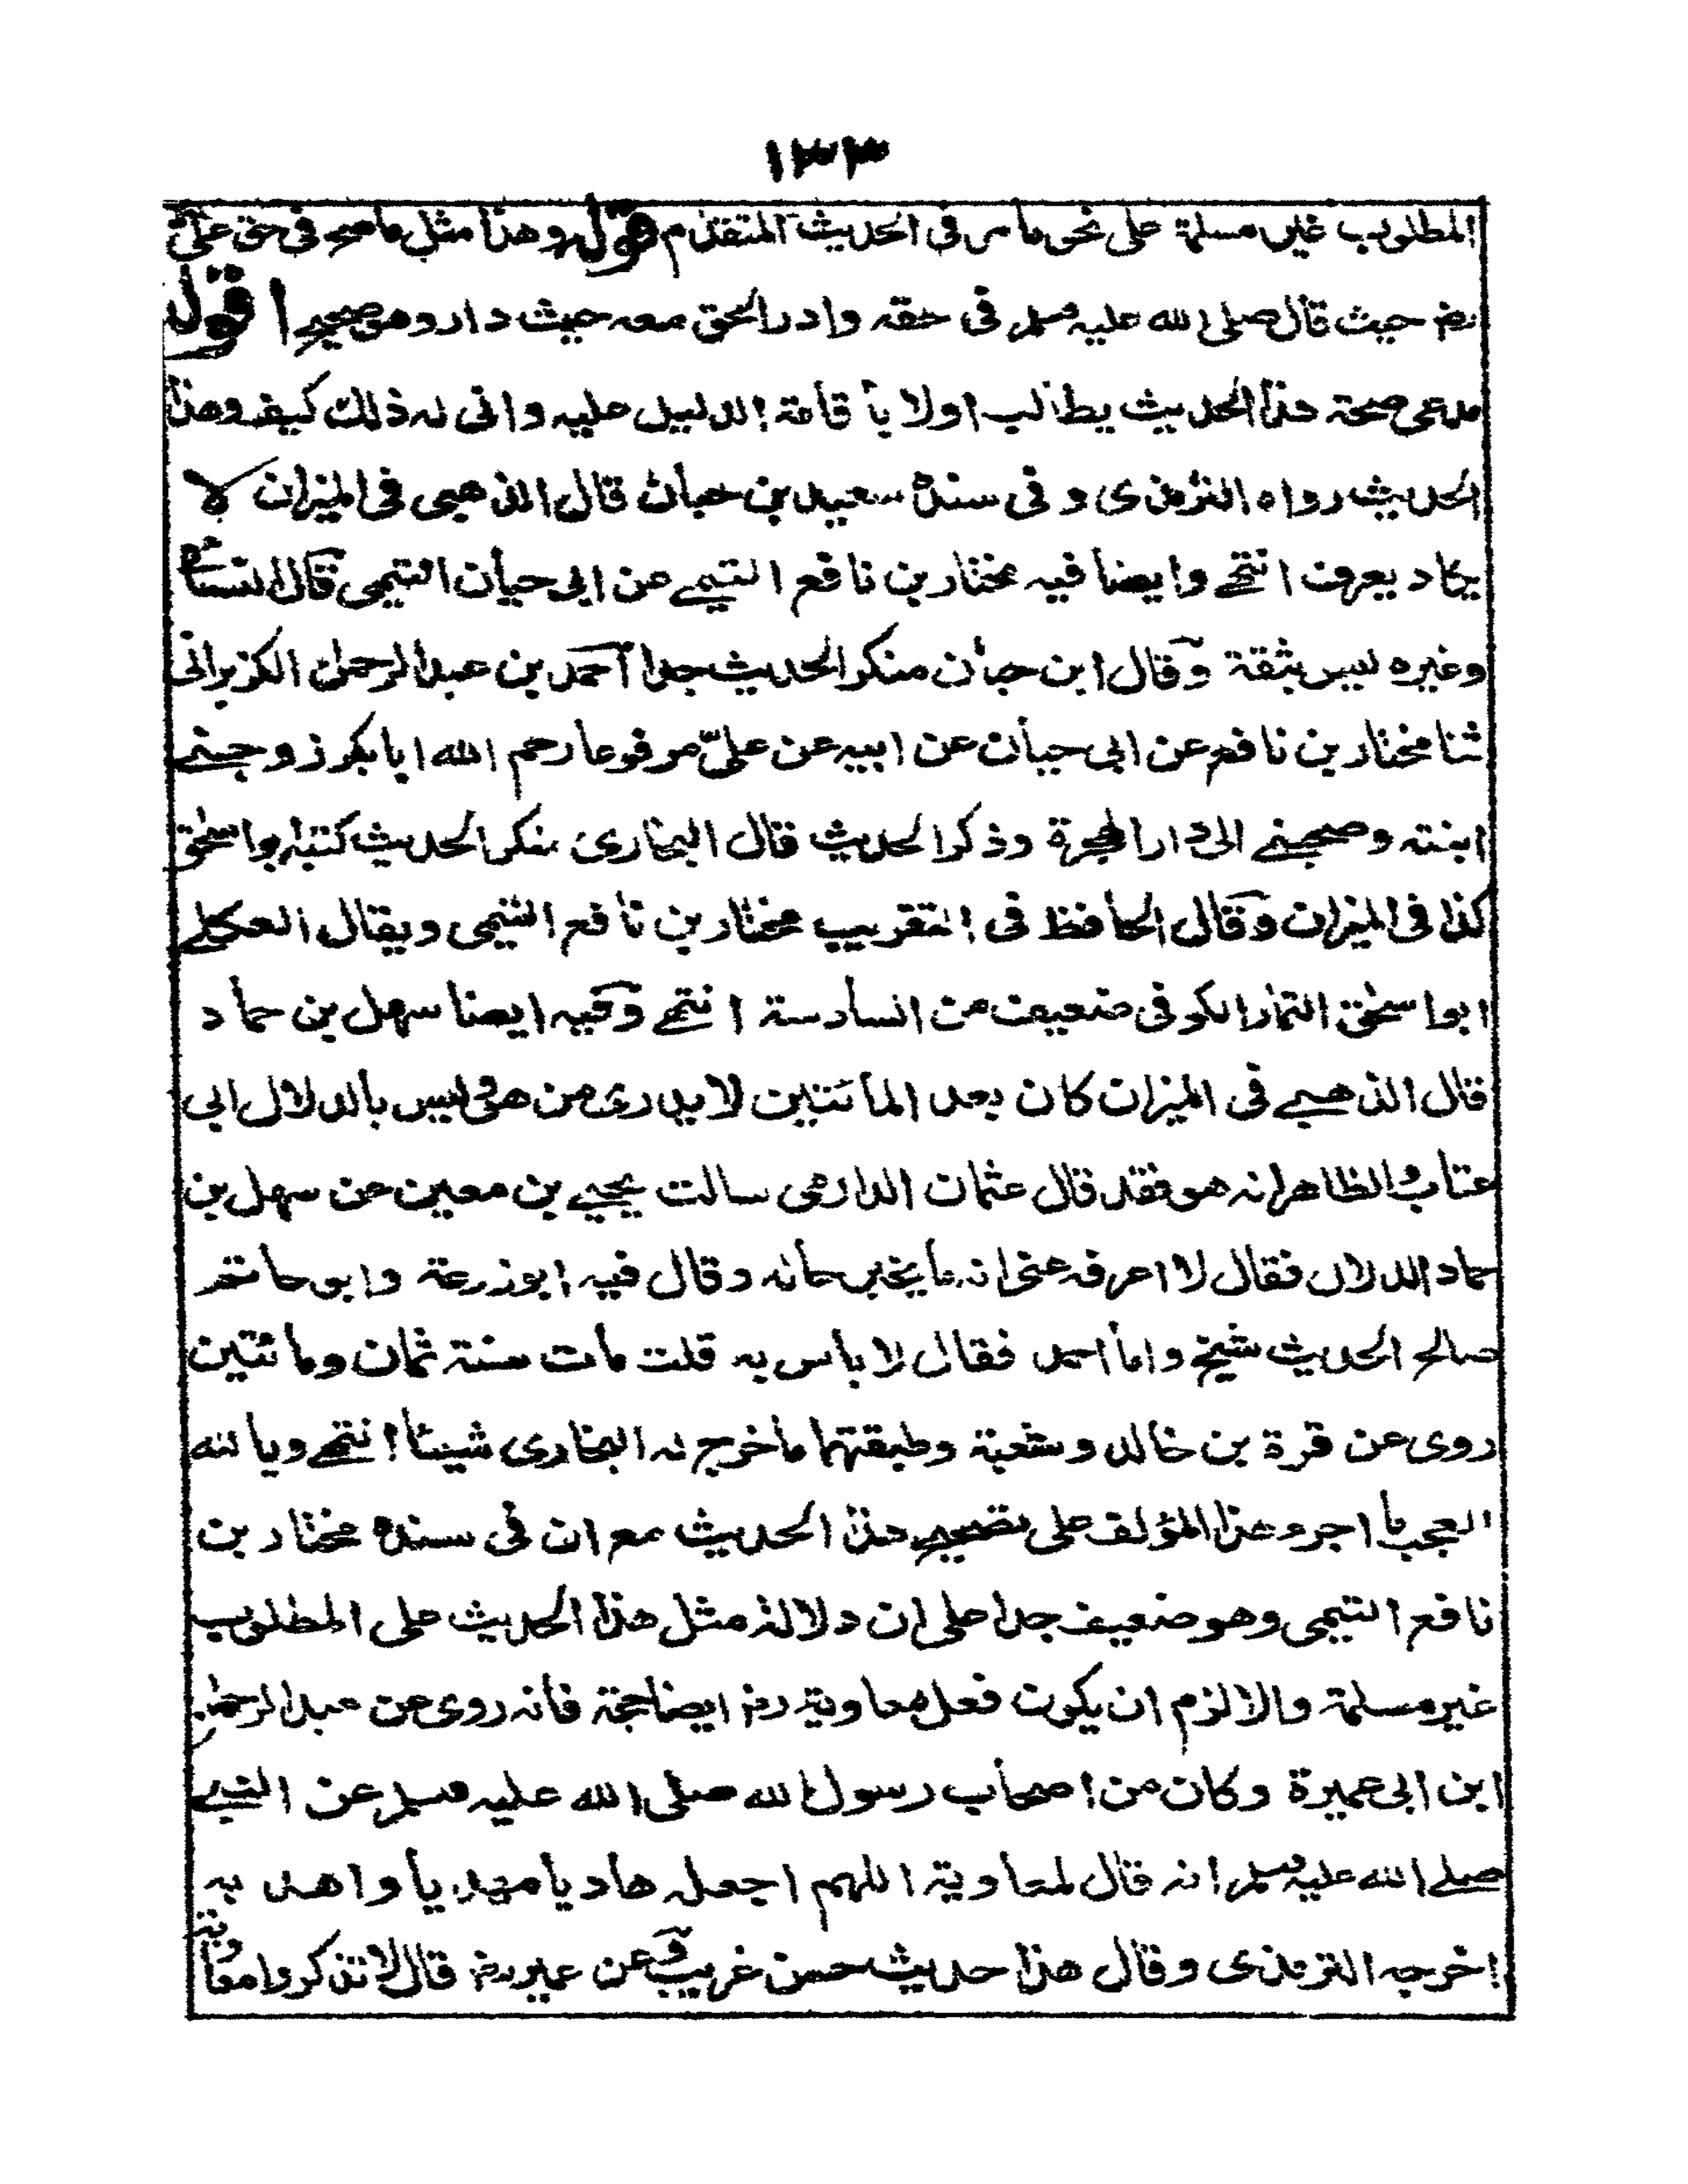 ١٣٣
المطلوب غير مسلمة على نحو ما مر فى الحديث المتقدم قوله وهذا مثل ما صح فى حق على
رض حيث قال صلى الله عليه وسلم فى حقه وادر الحق معه حيث دار وهو صحيح اقول
مدعى صحة هذا الحديث يطالب اولا باقامة الدليل عليه وانى له ذلك كيف وهذا
الحديث رواه الترمذى وفى سنده سعيد بن حبان قال الذهبى فى الميزان لا
يكاد يعرف انتهے وايضا فيه مختار بن نافع التيمے عن ابى حيان التيمى قال النسائى
وغيره ليس بثقة وقال ابن حبان منكر الحديث جدا احمد بن عبد الرحمن الكزبرانى
ثنا مختار بن نافع عن ابى حيان عن ابيه عن علىّ مرفوعا رحم الله ابا بكر زوجنے
ابنته وصحبنے الى دار الهجرة وذكر الحديث قال البخارى منكر الحديث كنيته ابو اسحٰق
كذا فى الميزان وقال الحافظ فى التقريب مختار بن نافع التيمى ويقال العكلے
ابو اسحٰق التمار الكوفى ضعيف من السادسة انتهے وفيه ايضا سهل بن حماد
قال الذهبے فى الميزان كان بعد المائتين لا يدرى من هو وليس بالدلال ابى
عتاب والظاهر انه هو فقد قال عثمان الدارمى سالت يحيے بن معين عن سهل بن
حماد الدلال فقال لا اعرفه عنى انه ما يخبر حاله وقال فيه ابو زرعة وابو حاتم
صالح الحديث شيخ واما احمد فقال لا باس به قلت مات سنة ثمان ومائتين
روى عن قرة بن خالد وشعبة وطبقتهما ما خرج له البخارى شيئا انتهے ويا لله
العجب ما اجرء هذا المؤلف على تصحيح هذا الحديث مع ان فى سنده مختار بن
نافع التيمى وهو ضعيف جدا على ان دلالة مثل هذا الحديث على المطلوب
غير مسلمة والا لزم ان يكون فعل معاوية رض ايضا حجة فانه روى عن عبد الرحمن
ابن ابى عميرة وكان من اصحاب رسول الله صلى الله عليه وسلم عن النبے
صلے الله عليه وسلم انه قال لمعاوية اللهم اجعله هاديا مهديا واهد به
اخرجه الترمذى وقال هذا حديث حسن غريب وعن عمير رض قال لا تذكروا معاوية